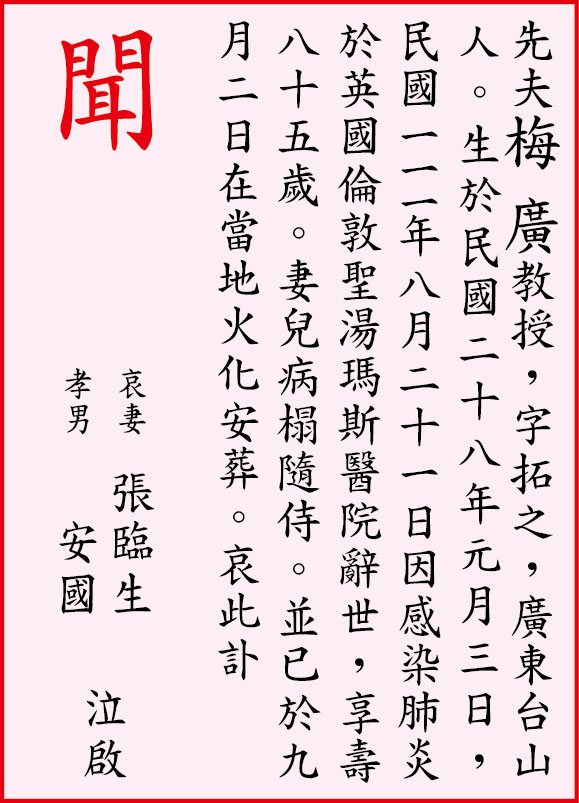 先夫梅 廣教授，字拓之，廣東台山
人。生於民國二十八年元月三日，
民國一一一年八月二十一日因感染肺炎
於英國倫敦聖湯瑪斯醫院辭世，享壽
八十五歲。妻兒病榻隨侍。並已於九
月二日在當地火化安葬。哀此訃
聞
哀妻 張臨生
孝男 安國
泣啟